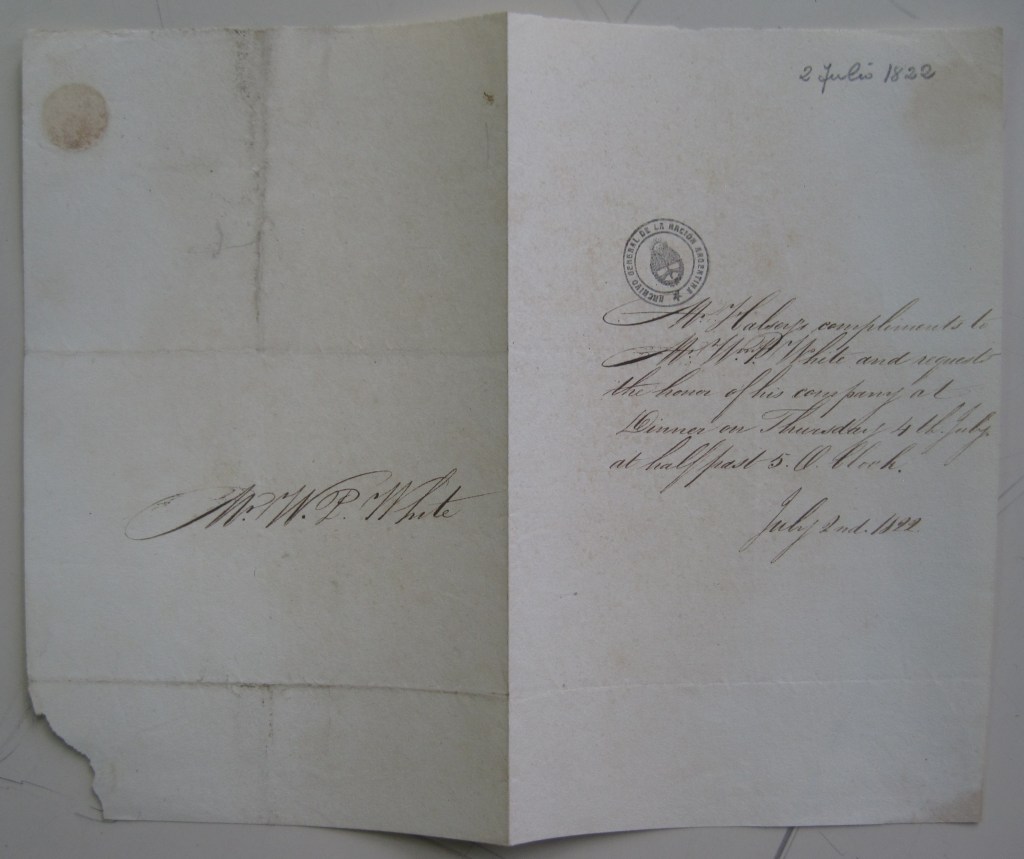 Mr. W. P. White
2 Julio 1822
ARCHIVO GENERAL DE LA NACION ARGENTINA
Mr. Halsey's compliments to
Mr. Wm. P. White and requests
the honor of his company at
Dinner on Thursday 4th. July.
at half past 5. O. Clock.
July 2nd. 1822.